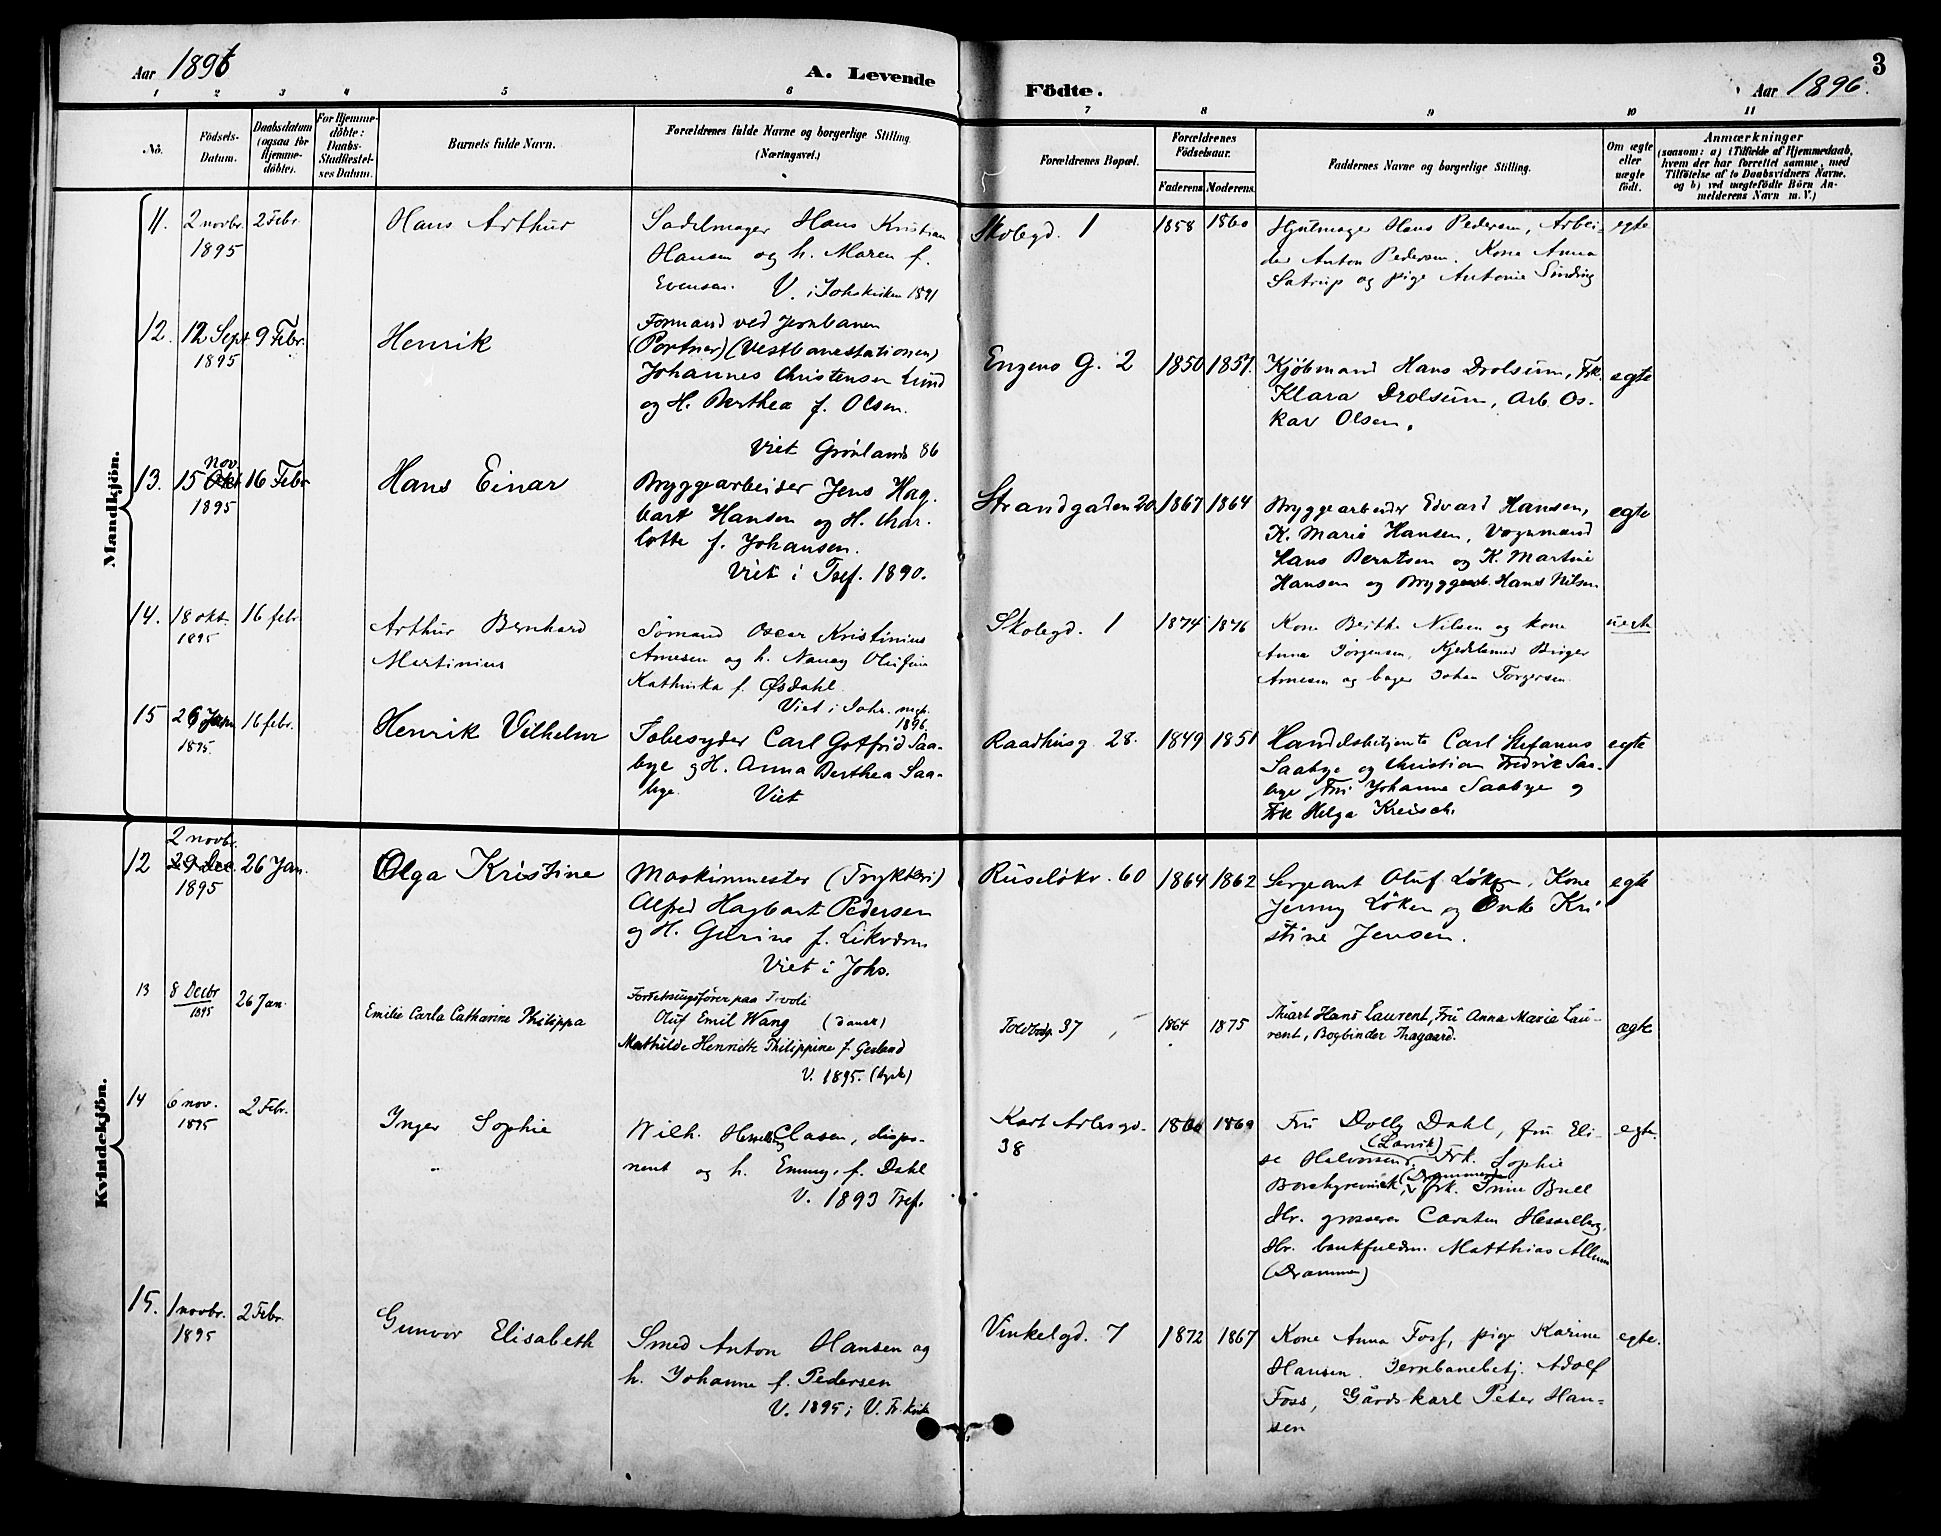 Aar 1896
A. Levende
Födte.
Aar 1896.
3
1 2 3 4 5 6 7 8 9 10 11
No.
Födsels-
Datum.
Daabsdatum
(ogsaa for
Hjemme-
döbte).
For Hjemme-
döbte:
Daabs-
Stadfæstel-
ses Datum.
Barnets fulde Navn.
Forældrenes fulde Navne og borgerlige Stilling
(Næringsvei.)
Forældrenes Bopæl.
Forældrenes
Födselsaar.
Faderens. Moderens.
Faddernes Navne og borgerlige Stilling.
Om ægte
eller
uægte
födt.
Anmærkninger
(saasom: a) i Tilfælde af Hjemmedaab,
hvem der har forrettet samme, med
Tilföielse af to Daabsvidners Navne,
og b) ved uægtefödte Börn An-
melderens Navn m. V.)
Mandkjön.
11.
2 novbr.
1895
2 Febr
Hans Arthur
Sadelmager Hans Kristian
Hansen og h. Maren f.
Evensen. V. i Johskirken 1891
Skolegd. 1
1858 1860
Hjulmager Hans Pedersen, Arbei-
der Anton Pedersen. Kone Anna
Satrup og pige Antonie Sinding
egte
12.
12 Sept
1895
9 Febr.
Henrik
Formand ved Jernbanen
(Portner) (Vestbanestationen)
Johannes Christensen Lund
og H. Berthea f. Olsen.
Viet Grønlands 86
Engens G. 2
1850 1851.
Kjøbmand Hans Drolsum, Frk.
Klara Drolsum, Arb. Os-
kar Olsen.
egte
13.
nov
15 Okt
1895
16 Febr
Hans Einar
Bryggearbeider Jens Hag-
bart Hansen og H. Char-
lotte f. Johansen.
Viet i Tref. 1890.
Strandgaden 20
1867 1864
Bryggearbeider Edvard Hansen,
K. Marie Hansen, Vognmand
Hans Berntsen og K. Martine
Hansen og Bryggearb. Hans Nilsen
egte
14.
18 okt.
1895
16 febr
Arthur Bernhard
Martinius
Sømand Oscar Kristinius
Arnesen og h. Nancy Olufine
Kathinka f. Øsdahl.
Viet i Johs.
1896
Skolegd. 1
1874 1876
Kone Berthe Nilsen og kone
Anna Jörgensen, Kjedelsmed Birger
Arnesen og bager Johan Torgersen.
15
26
1895
16 febr.
Henrik Vilhelm
Carl Gotfrid Saa-
bye og H. Anna Berthea Saa-
bye. Viet
Raadhusg. 28.
1849 1851
Handelsbetjente Carl Stefanus
Saabye og Christian Fredrik Saa-
bye Fru Johanne Saabye og
Frk Helga Kreisch.
egte
Kvindekjön.
12
2 novbr.
29 Dec.
1895
26 Jan.
Olga Kristine
Maskinmester (Trykkeri)
Alfred Hagbart Pedersen
og H. Gurine f. Likværn
Viet i Johs.
Ruseløkv. 60
1864 1862
Sergeant Oluf Løken, Kone
Jenny Løken og Enke Kri
stine Jensen.
egte
13
8 Decbr
1895
26 Jan.
Emilie Carla Catharine Philippa
Forretningsfører paa Tivoli
Oluf Emil Wang (dansk)
Mathilde Henriette Philippine f. Gerland
V. 1895. (tysk)
Toldbodg. 37
1864 1875
Hans Laurent, Fru Anna Marie Lau-
rent, Bogbinder Thagaard.
ægte
14
6 nov.
1895
2 Febr.
Inger Sophie
Wilh. Hesselberg Clasen, dispo-
nent og h. Emmy, f. Dahl
V. 1893 Tref.
Kort Arlesgd.
38
1869
Fru Dolly Dahl, fru Eli-
se Halvorsen (Larvik), Frk. Sophie
(Drammen), frk. Trine Bull
Hr. grosserer Carsten Hesselberg,
Hr. bankfuldm. Matthias Allum
(Drammen)
egte.
15.
1 novbr.
1895
2 Febr.
Gunvor Elisabeth
Smed Anton Hansen og
h. Johanne f. Pedersen
V. 1895 i V. Fr. kirke
Vinkelgd. 7
1872 1867
Kone Anna Foss, pige Karine
Hansen. Jernbanebetj. Adolf
Foss, Gårdskarl Peter Han-
sen
egte.